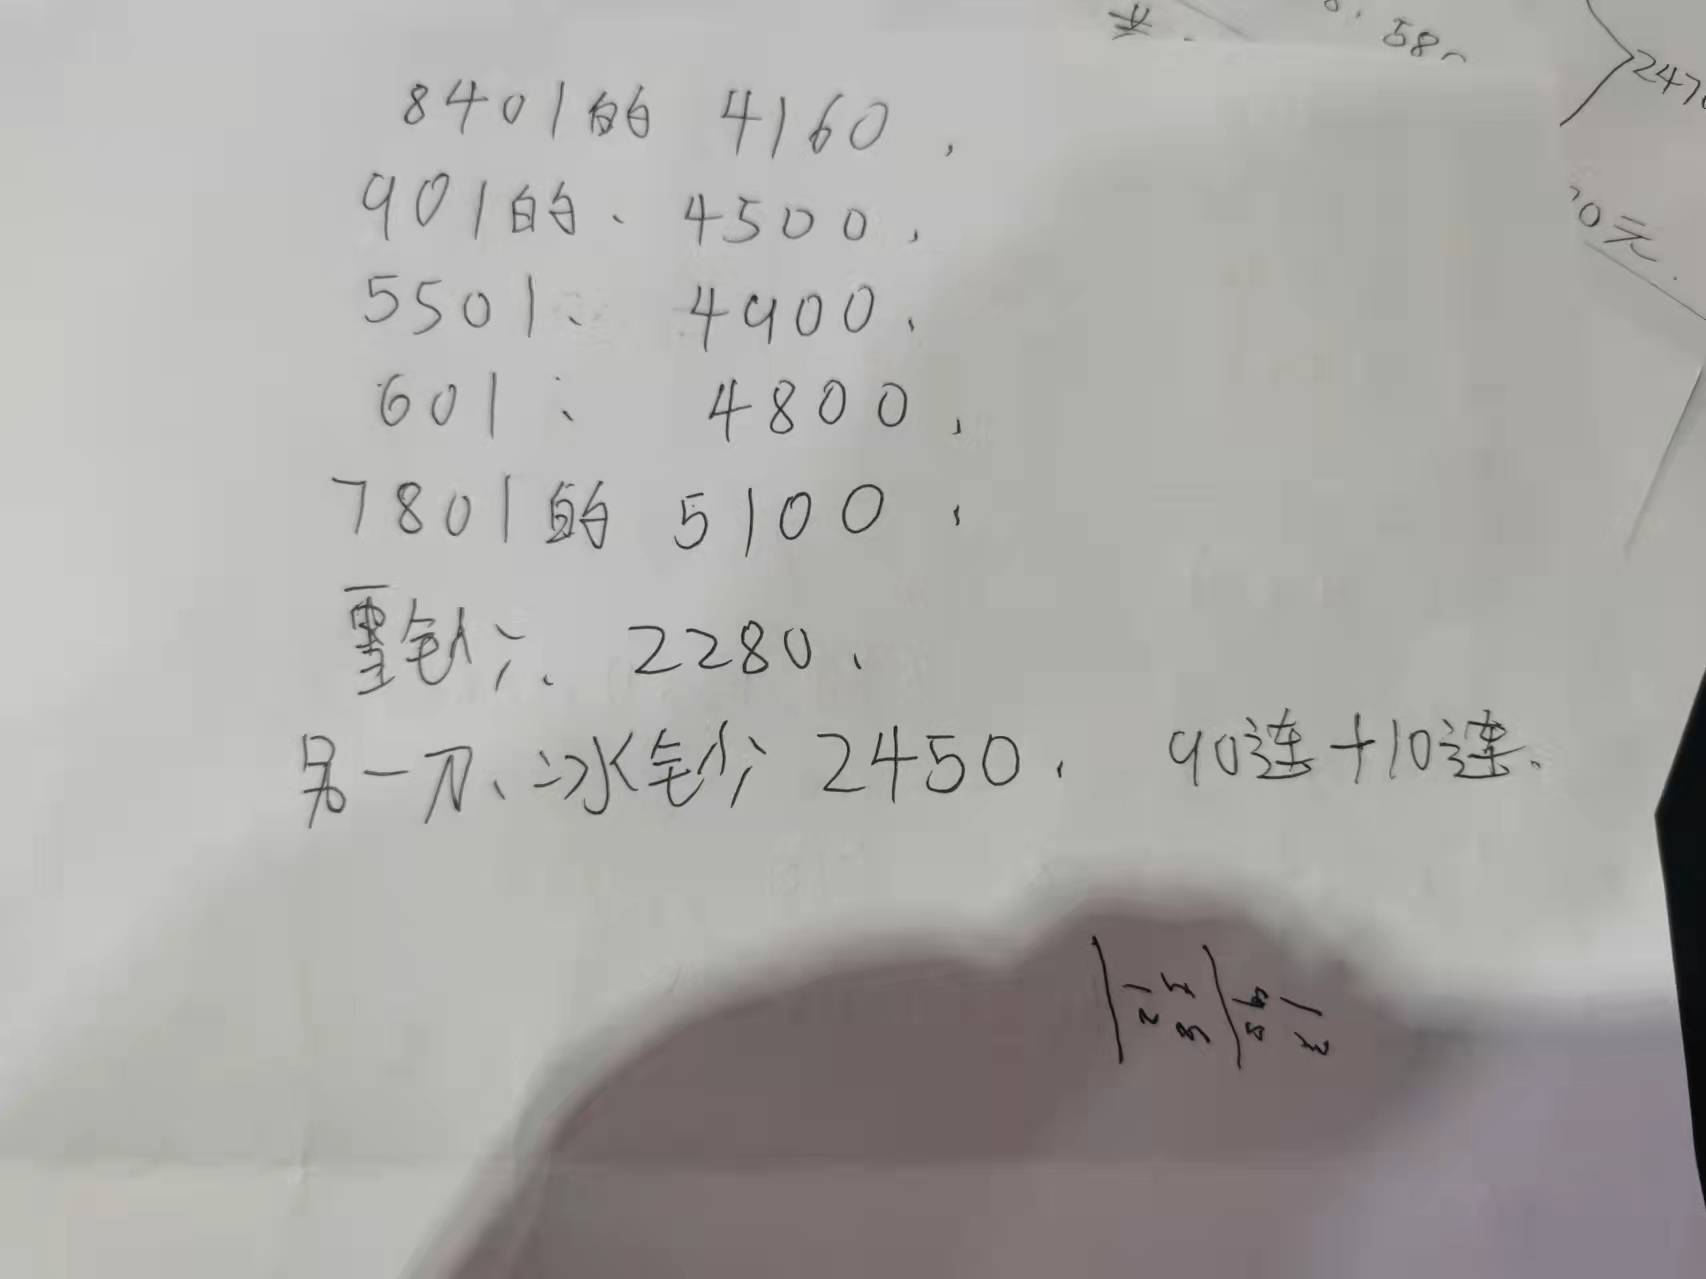 8401的 4160、
901的、4500、
5501、 4900、
601、 4800、
7801的 5100、
雪钞、2280、
另一刀、冰钞 2450、 90连+10连、
58
247
0元.